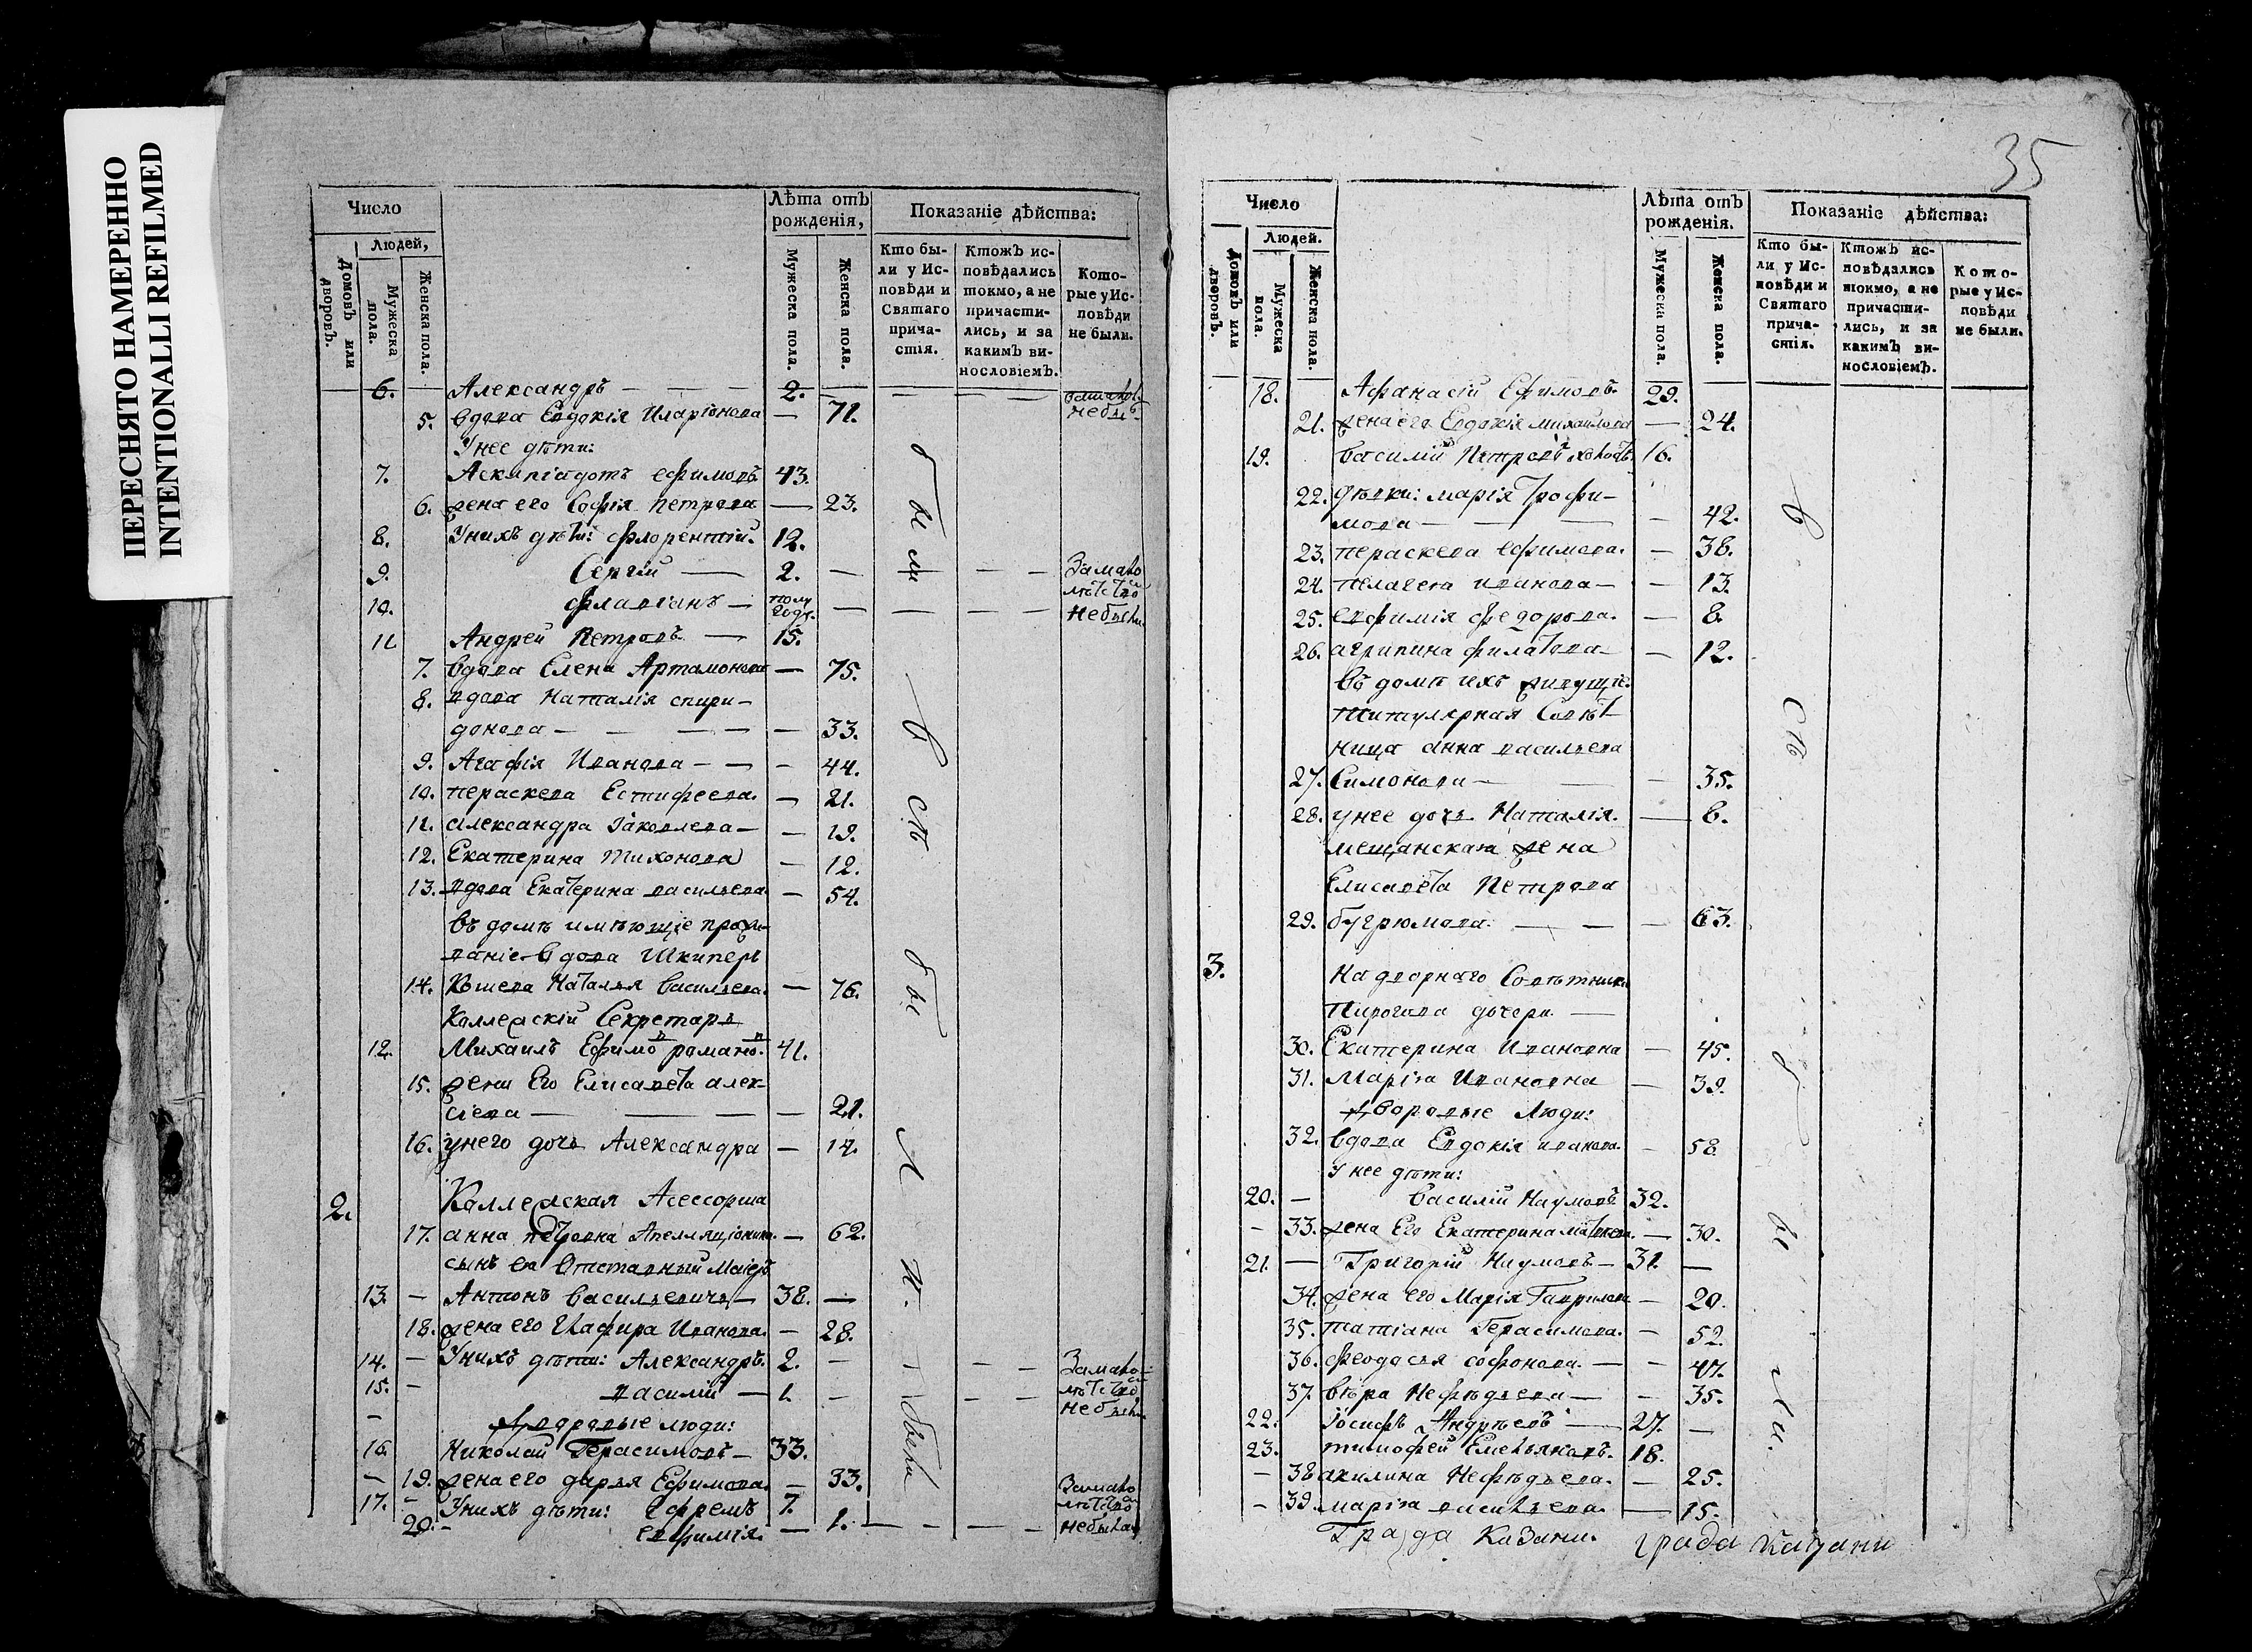 ПЕРЕСНЯТО НАМЕРЕННО
INTENTIONALLI REFILMED
Число
Людей,
Домовъ или дворовъ.
Мужеска пола.
Женска пола.
Лѣта отъ рожденія,
Мужеска пола.
Женска пола.
Показаніе дѣйства:
Кто были у Исповѣди и Святаго причастія.
Ктожъ исповѣдались токмо, а не причастились, и за какимъ винословіемъ.
Которые у Исповѣди не были.
6. Александръ — — — 2. — — — —
5. вдова Евдокія Иларіонова — 71.
У нее дѣти:
7. Асклпіадотъ Ефимовъ 43.
6. жена его Софія Петрова — 23.
8. У нихъ дѣти: Флорентій. 12.
9. Сергій — 2. — — — — Замало
лѣтство
10. Флавіанъ — полу
году. — — — — небыли
11. Андрей Петровъ — 15.
7. Вдова Елена Артамонова — 75.
8. вдова Наталія Спири-
донова — — — — 33.
9. Агафія Иванова — — — 44.
10. Параскева Евстифеева. — 21.
11. Александра Іаковлева — — 19.
12. Екатерина Тихонова — 12.
13. вдова Екатерина Васильева — 54.
въ домѣ имѣющіе прожи-
ваніе вдова Шкипер
14. Наталья Васильева. — 76.
Коллежскій Секретарь
12. Михаилъ Ефимовъ Романовъ. 41.
15. жена Его Елисавета Алек-
сіева — — — — 21.
16. у него дочь Александра — 14.
2. Коллежская Асессорша
17. Анна Петровна Апелляціонина. — 62.
сынъ ея Отставный Маіоръ
13. — Антонъ Васильевичь — 38. —
18. жена его Иванова. — 28.
14. — У нихъ дѣти: Александръ. 2. — — — — Замало
15. — Василій — 1. — — — лѣтство
небыли
Дворовые люди:
16. Николай Герасимовъ — 33.
19. жена его Дарья Ефимова. — 33.
17. — У нихъ дѣти: Ефремъ 7. Замало
лѣтство
20. — Евфимія. — 1. — — — — небыла
35
Число
Людей.
Домовъ или дворовъ.
Мужеска пола.
Женска пола.
Лѣта отъ рожденія.
Мужеска пола.
Женска пола.
Показаніе дѣйства:
Кто были у Исповѣди и Святаго причастія.
Ктожъ исповѣдались токмо, а не причастились, и за какимъ винословіемъ.
Которые у Исповѣди не были.
18. Афанасій Ефимовъ. 29.
21. жена его Евдокія Михаилова — 24.
19. Василій Петровъ 16.
22. Дѣвки: Марія Трофи-
мова — — — 42.
23. Параскева Ефимова. — 38.
24. Пелагея Иванова — — 13.
25. Евфимія Федорова. — 8.
26. Агрипина Филатова — — 12.
въ домѣ ихъ живущіе.
Титулярная Совѣт-
ница Анна Васильева
27. Симонова — — — 35.
28. у нее дочь Наталія. — 6.
мещанская жена
Елисавета Петрова
29. Бугрюмова. — — — 63.
3. Надворнаго Совѣтника
Пирогова дочери —
30. Екатерина Ивановна — 45.
31. Марія Ивановна — 39.
Дворовые люди:
32. вдова Евдокія Иванова. — 58.
У нее дѣти:
20. — Василій Наумовъ 32.
— 33. жена Его Екатерина Матвеева. — 30.
21. — Григорій Наумовъ — 31. —
34. жена его Марія Гаврилова — 20.
35. Татіана Герасимова. — 52.
36. Феодосья Софонова. — — 47.
37. Вѣра Нефѣдьева — — 35.
22. Іосифъ Андрѣевъ — 27. —
23. Тимофей Емельяновъ. 18.
— 38. Акилина Нефѣдьева. — 25.
— 39. Марія Васильева. — 15.
Града Казани. града Казани